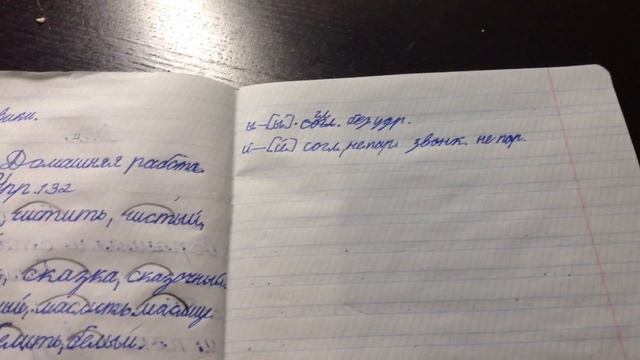 вики.
Домашняя работа.
Упр. 132
, чистить, чистый,
, сказка, сказочный.
ный, маслить масляще
елить, белый.
ы – [ы] - согл. безудр.
й – [й'] согл, непарн звонк. непар.